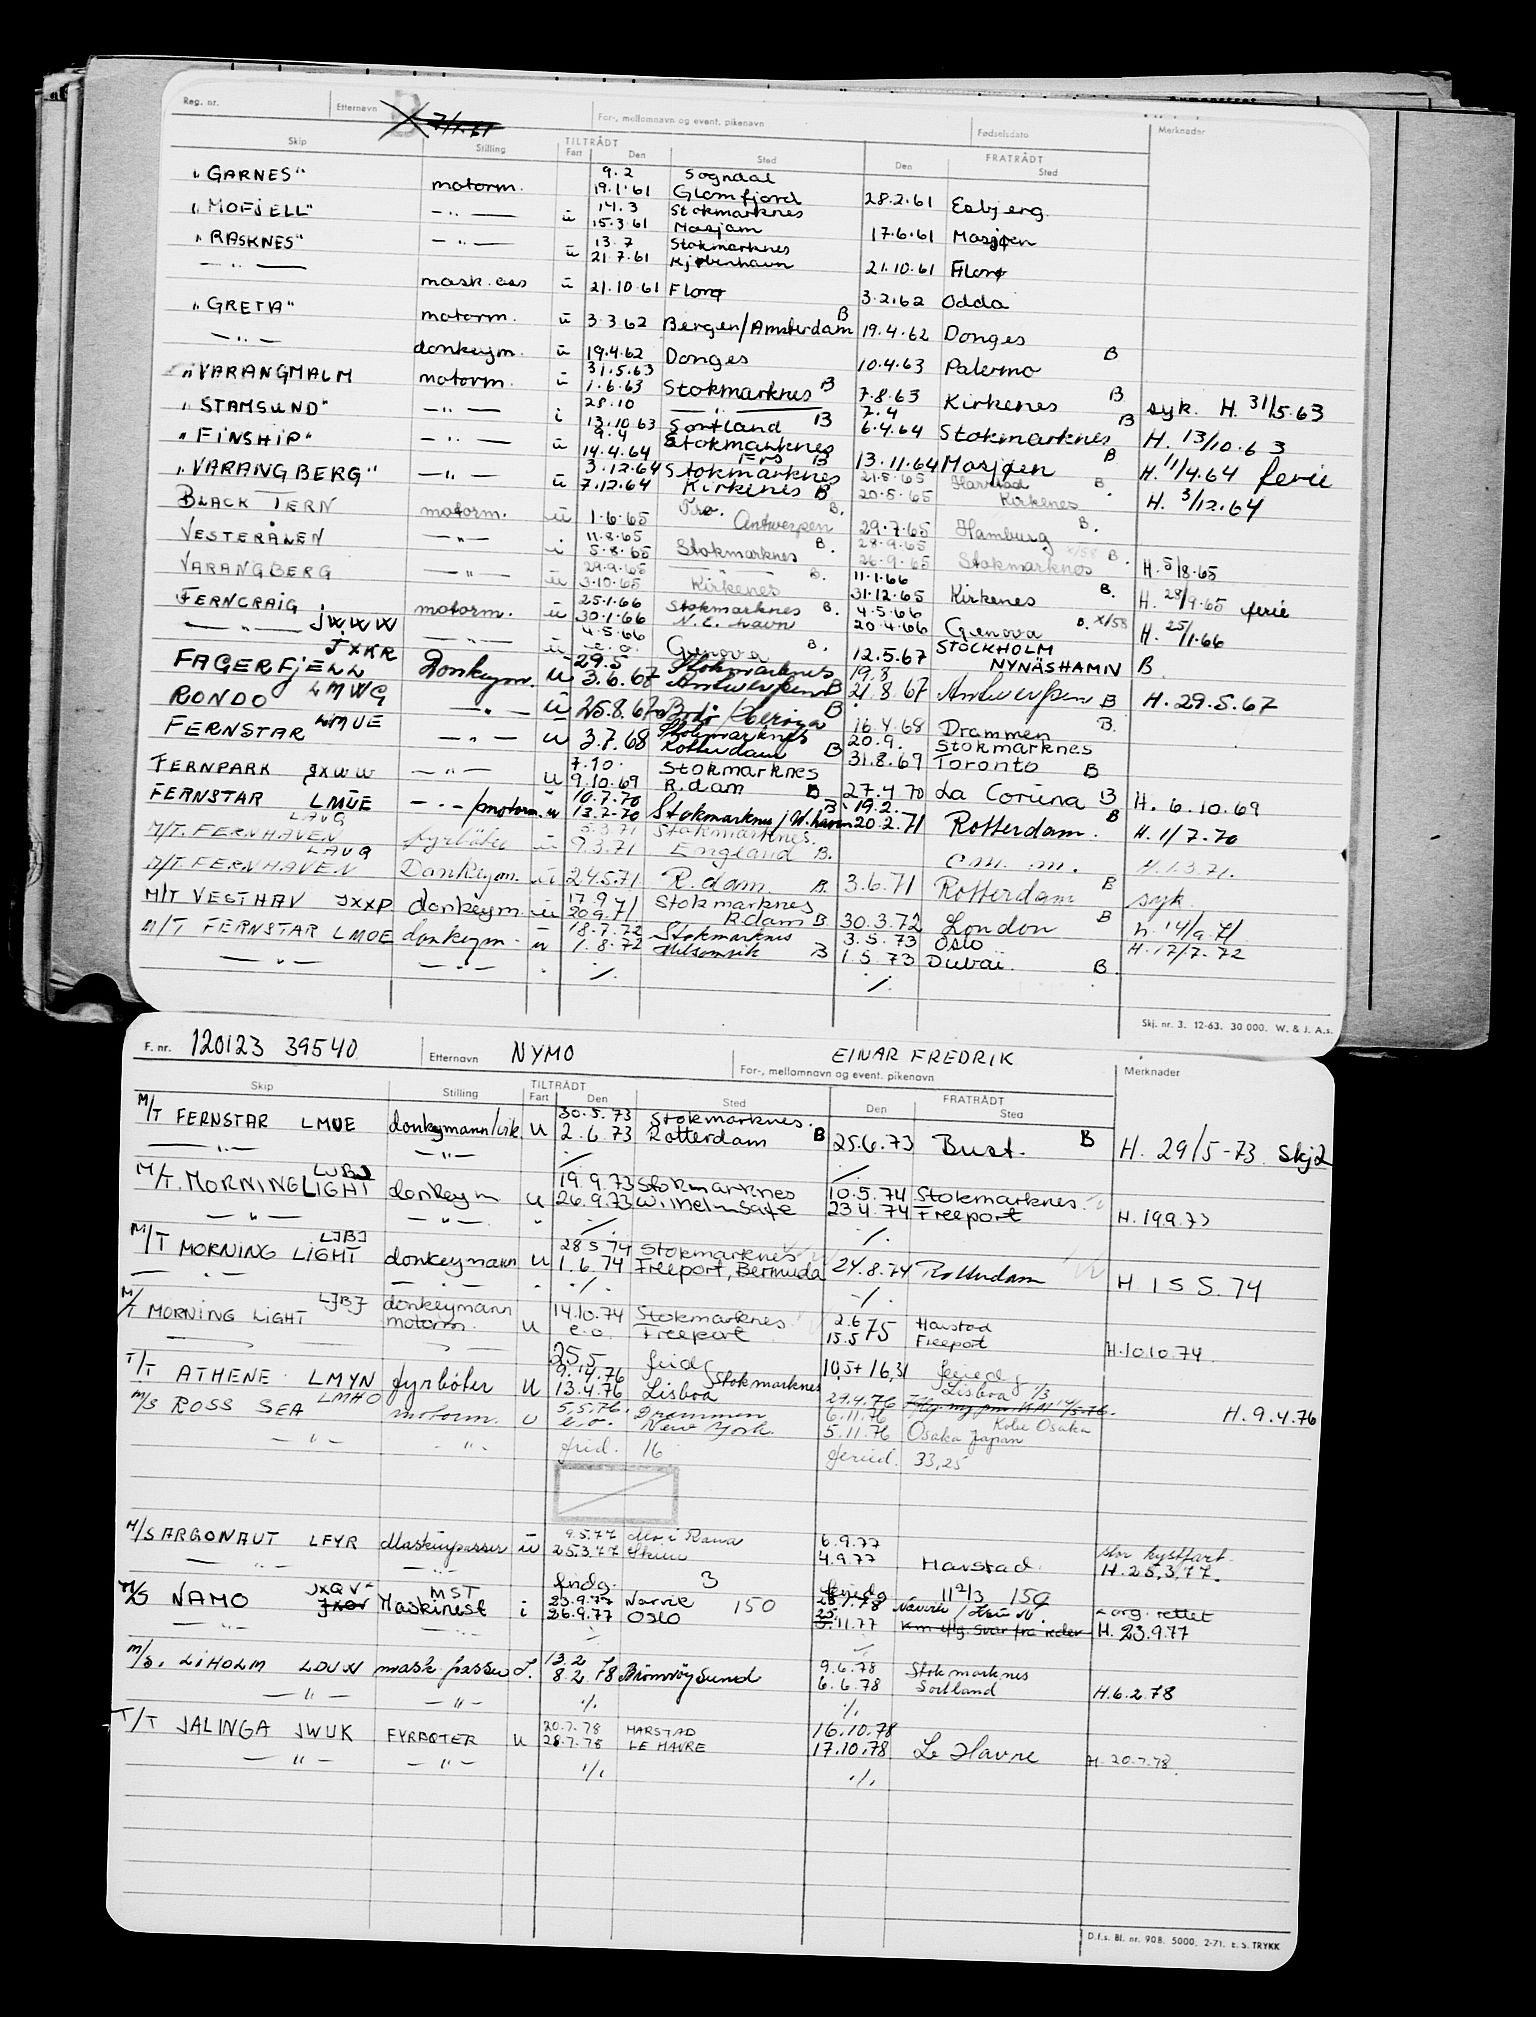 Reg. nr. Etternavn B 7/11.61 For-, mellomnavn og event. pikenavn Fødselsdato Merknader
Skip Stilling TILTRÅDT FRATRÅDT
Fart Den Sted Den Sted
9.2 Sogndal
"GARNES" motorm. 19.1.61 Glomfjord 28.2.61 Esbjerg.
14.3 Stokmarknes
"MOFJELL" — " — u 15.3.61 Mosjøen 17.6.61 Mosjøen
13.7 Stokmarknes
"RASKNES" — " — u 21.7.61 Kjøbenhavn 21.10.61 Florø
— " — mask. ass u 21.10.61 Florø 3.2.62 Odda
"GRETA" motorm. u 3.3.62 Bergen/Amsterdam B 19.4.62 Donges
— " — donkeym. u 19.4.62 Donges 10.4.63 Palermo B
31.5.63
"VARANGMALM motorm. u 1.6.63 Stokmarknes B 7.8.63 Kirkenes B syk. H. 31/5.63
28.10 — " — 7.4
"STAMSUND" — " — i 13.10.63 Sortland B 6.4.64 Stokmarknes B H. 13/10.63
9.4 Stokmarknes
"FINSHIP" — " — u 14.4.64 B 13.11.64 Mosjøen B H. 11/4.64 ferie
3.12.64 Stokmarknes 21.5.65 Harstad B
"VARANGBERG" — " — u 7.12.64 Kirkenes B 20.5.65 Kirkenes H. 3/12.64
BLACK TERN motorm. u 1.6.65 Antwerpen B. 29.7.65 Hamburg B.
11.8.65 28.9.65
VESTERÅLEN — " — i 5.8.65 Stokmarknes B. 26.9.65 Stokmarknes B. H. 5/8.65
29.9.65 — " — B. 11.1.66
VARANGBERG — " — u 3.10.65 Kirkenes 31.12.65 Kirkenes B. H. 28/9.65 ferie
25.1.66 Stokmarknes B. 4.5.66
FERNCRAIG JWWW motorm. u 30.1.66 N.E. havn 20.4.66 Genova B. X/58 H. 25/1.66
4.5.66 STOCKHOLM
— " — JXKR — " — u e.o. Genova B. 12.5.67 NYNÄSHAMN B
29.5 Stokmarknes 19.8
FAGERFJELL LMWG Donkeym. u 3.6.67 Antwerpen B 21.8.67 Antwerpen B H. 29.5.67
RONDO — " — u 25.8.67 Bodø/Herøya B 16.4.68 Drammen B.
Stokmarknes 20.9. Stokmarknes
FERNSTAR LMUE — " — u 3.7.68 Rotterdam B 31.8.69 Toronto B
7.10. Stokmarknes
FERNPARK JXWW — " — u 9.10.69 R.dam B 27.4.70 La Coruna B H. 6.10.69
10.7.70 B 19.2.
FERNSTAR LMUE — " — /motorm. u 13.7.70 Stokmarknes/W.haven 20.2.71 Rotterdam. B H. 1/7.70
5.3.71 Stokmarknes.
M/T. FERNHAVEN LAUG fyrbøter u 9.3.71 England B. em. m. H. 1.3.71.
M/T FERNHAVEN LAUG Donkeym. u 24.5.71 R.dam. B. 3.6.71 Rotterdam B syk.
17.9 Stokmarknes
M/T VESTHAV JXXP donkeym u 20.9.71 R.dam B 30.3.72 London B h. 14/9.71
18.7.72 Stokmarknes 3.5.73 Oslo
M/T FERNSTAR LMOE donkeym. u 1.8.72 Melsomvik B 1.5.73 Dubai. B. H. 17/7.72
— " — — " — ./. ./.
Skj. nr. 3. 12-63. 30 000. W. & J. A.s.
F. nr. 120123 39540 Etternavn NYMO EINAR FREDRIK
For-, mellomnavn og event. pikenavn Merknader
Skip Stilling TILTRÅDT FRATRÅDT
Fart Den Sted Den Sted
30.5.73 Stokmarknes.
M/T FERNSTAR LMUE donkeymann/vik. u 2.6.73 Rotterdam B 25.6.73 Bust. B H. 29/5-73 Skj2
— " — — " — ./. ./.
LJBJ 19.9.73 Stokmarknes 10.5.74 Stokmarknes.
M/T. MORNINGLIGHT donkeym u 26.9.73 Wilhelmsafe 23.4.74 Freeport H. 19.9.73
— " — — " — " ./. ./.
LJBJ 28.5.74 Stokmarknes
M/T MORNING LIGHT donkeymann u 1.6.74 Freeport, Bermuda 24.8.74 Rotterdam H 15 5.74
— " — — " — ./. ./.
LJBJ donkeymann 14.10.74 Stokmarknes 2.6 Harstad
M/T MORNING LIGHT motorm. u e.o. Freeport 15.5 75 Freeport H.10.10.74.
25,5 frid 10,5+16,31 feried
9.4.76 Stokmarknes Lisboa 1/3
T/T ATHENE LMYN fyrbøter u 13.4.76 Lisboa 29.4.76 H. 9.4.76
M/S ROSS SEA LMHO motorm. u 5.5.76. Drammen 6.11.76 Kobe Osaka
e.o. New York. 5.11.76 Osaka Japan
— " — — " — frid. 16 feried. 33,25
9.5.77 Mo i Rana 6.9.77 stor kystfart.
M/S ARGONAUT LFYR Maskinpasser u 25.3.77 4.9.77 Harstad. H. 25.3.77.
— " — — " — fridg. 3 feriedg 11 2/3 150
JXQV MST 23.9.77 Narvik 150
M/S NAMO Maskinest i 26.9.77 Oslo 11.77 org. rettet
H. 23.9.77
13.2 9.6.78 Stokmarknes
M/S. LIHOLM LDUN mask passer I. 8.2.78 Brønnøysund 6.6.78 Sortland H.6.2.78
— " — — " — ./. ./.
20.7.78 HARSTAD 16.10.78
T/T JALINGA JWUK FYRBØTER u 28.7.78 LE HAVRE 17.10.78 Le Havre H. 20.7.78.
— " — — " — ./. ./.
D.f.s. Bl. nr. 908. 5000. 2-71. E. S. TRYKK